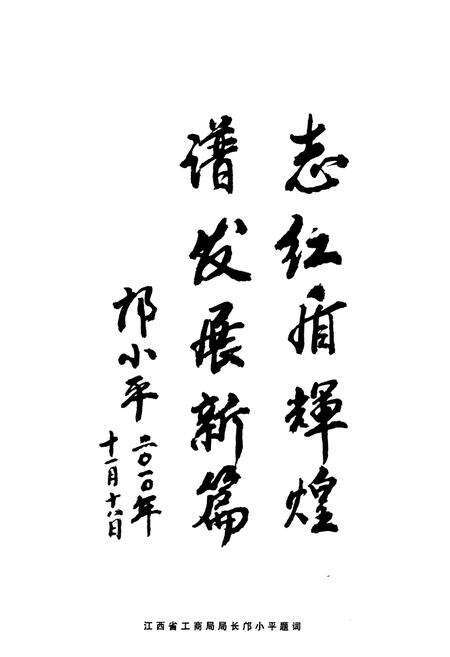 志红盾輝煌
谱发展新篇
邝小平
二〇一〇年
十一月十八日
江西省工商局局长邝小平题词